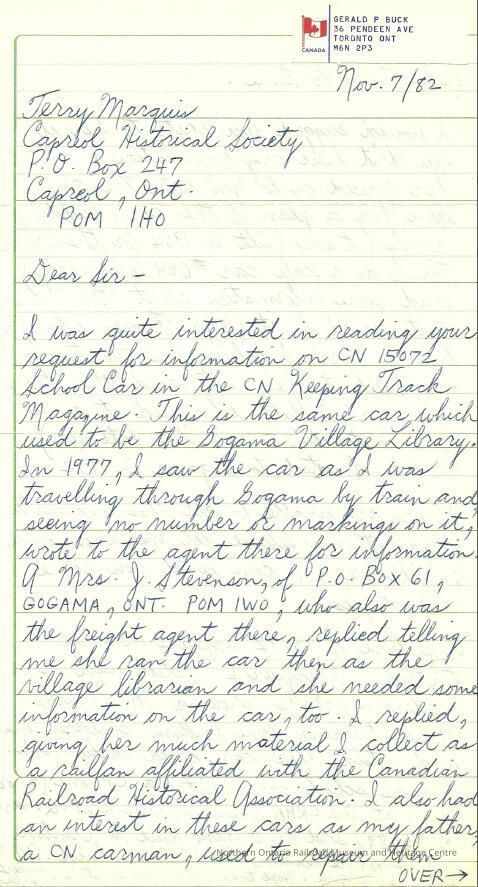 GERALD P BUCK
36 PENDEEN AVE
TORONTO ONT
M6N 2P3
CANADA
Nov. 7/82
Terry Marquis
Capreol Historical Society
P.O. Box 247
Capreol, Ont.
POM 1HO
Dear Sir -
I was quite interested in reading your
request for information on CN 15072
School Car in the CN Keeping Track
Magazine. This is the same car which
used to be the Gogama Village Library.
In 1977, I saw the car as I was
travelling through Gogama by train and
seeing no number or markings on it,
wrote to the agent there for information.
A Mrs. J. Stevenson, of P.O. BOX 61,
GOGAMA, ONT. POM 1WO, who also was
the freight agent there, replied telling
me she ran the car then as the
village librarian and she needed some
information on the car, too. I replied,
giving her much material I collect as
a railfan affiliated with the Canadian
Railroad Historical Association. I also had
an interest in these cars as my father,
a CN carman, used to repair them
Northern Ontario Railroad Museum and Heritage Centre
OVER→